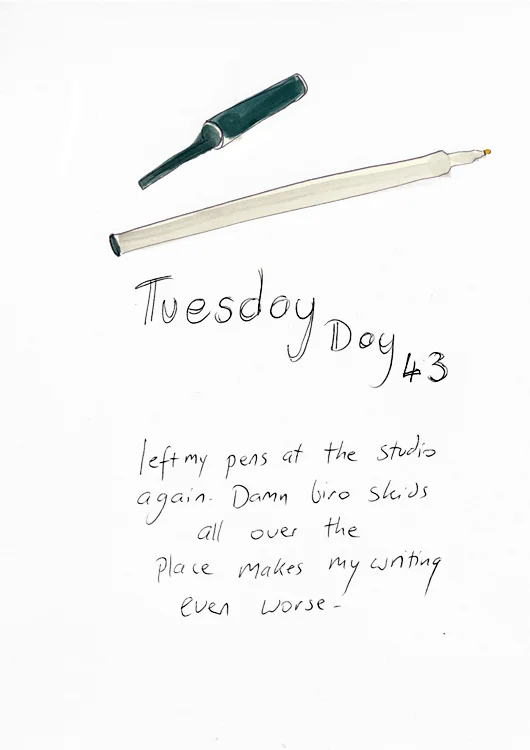 Tuesday Day 43
left my pens at the studio
again. Damn biro skids
all over the
place makes my writing
even worse-